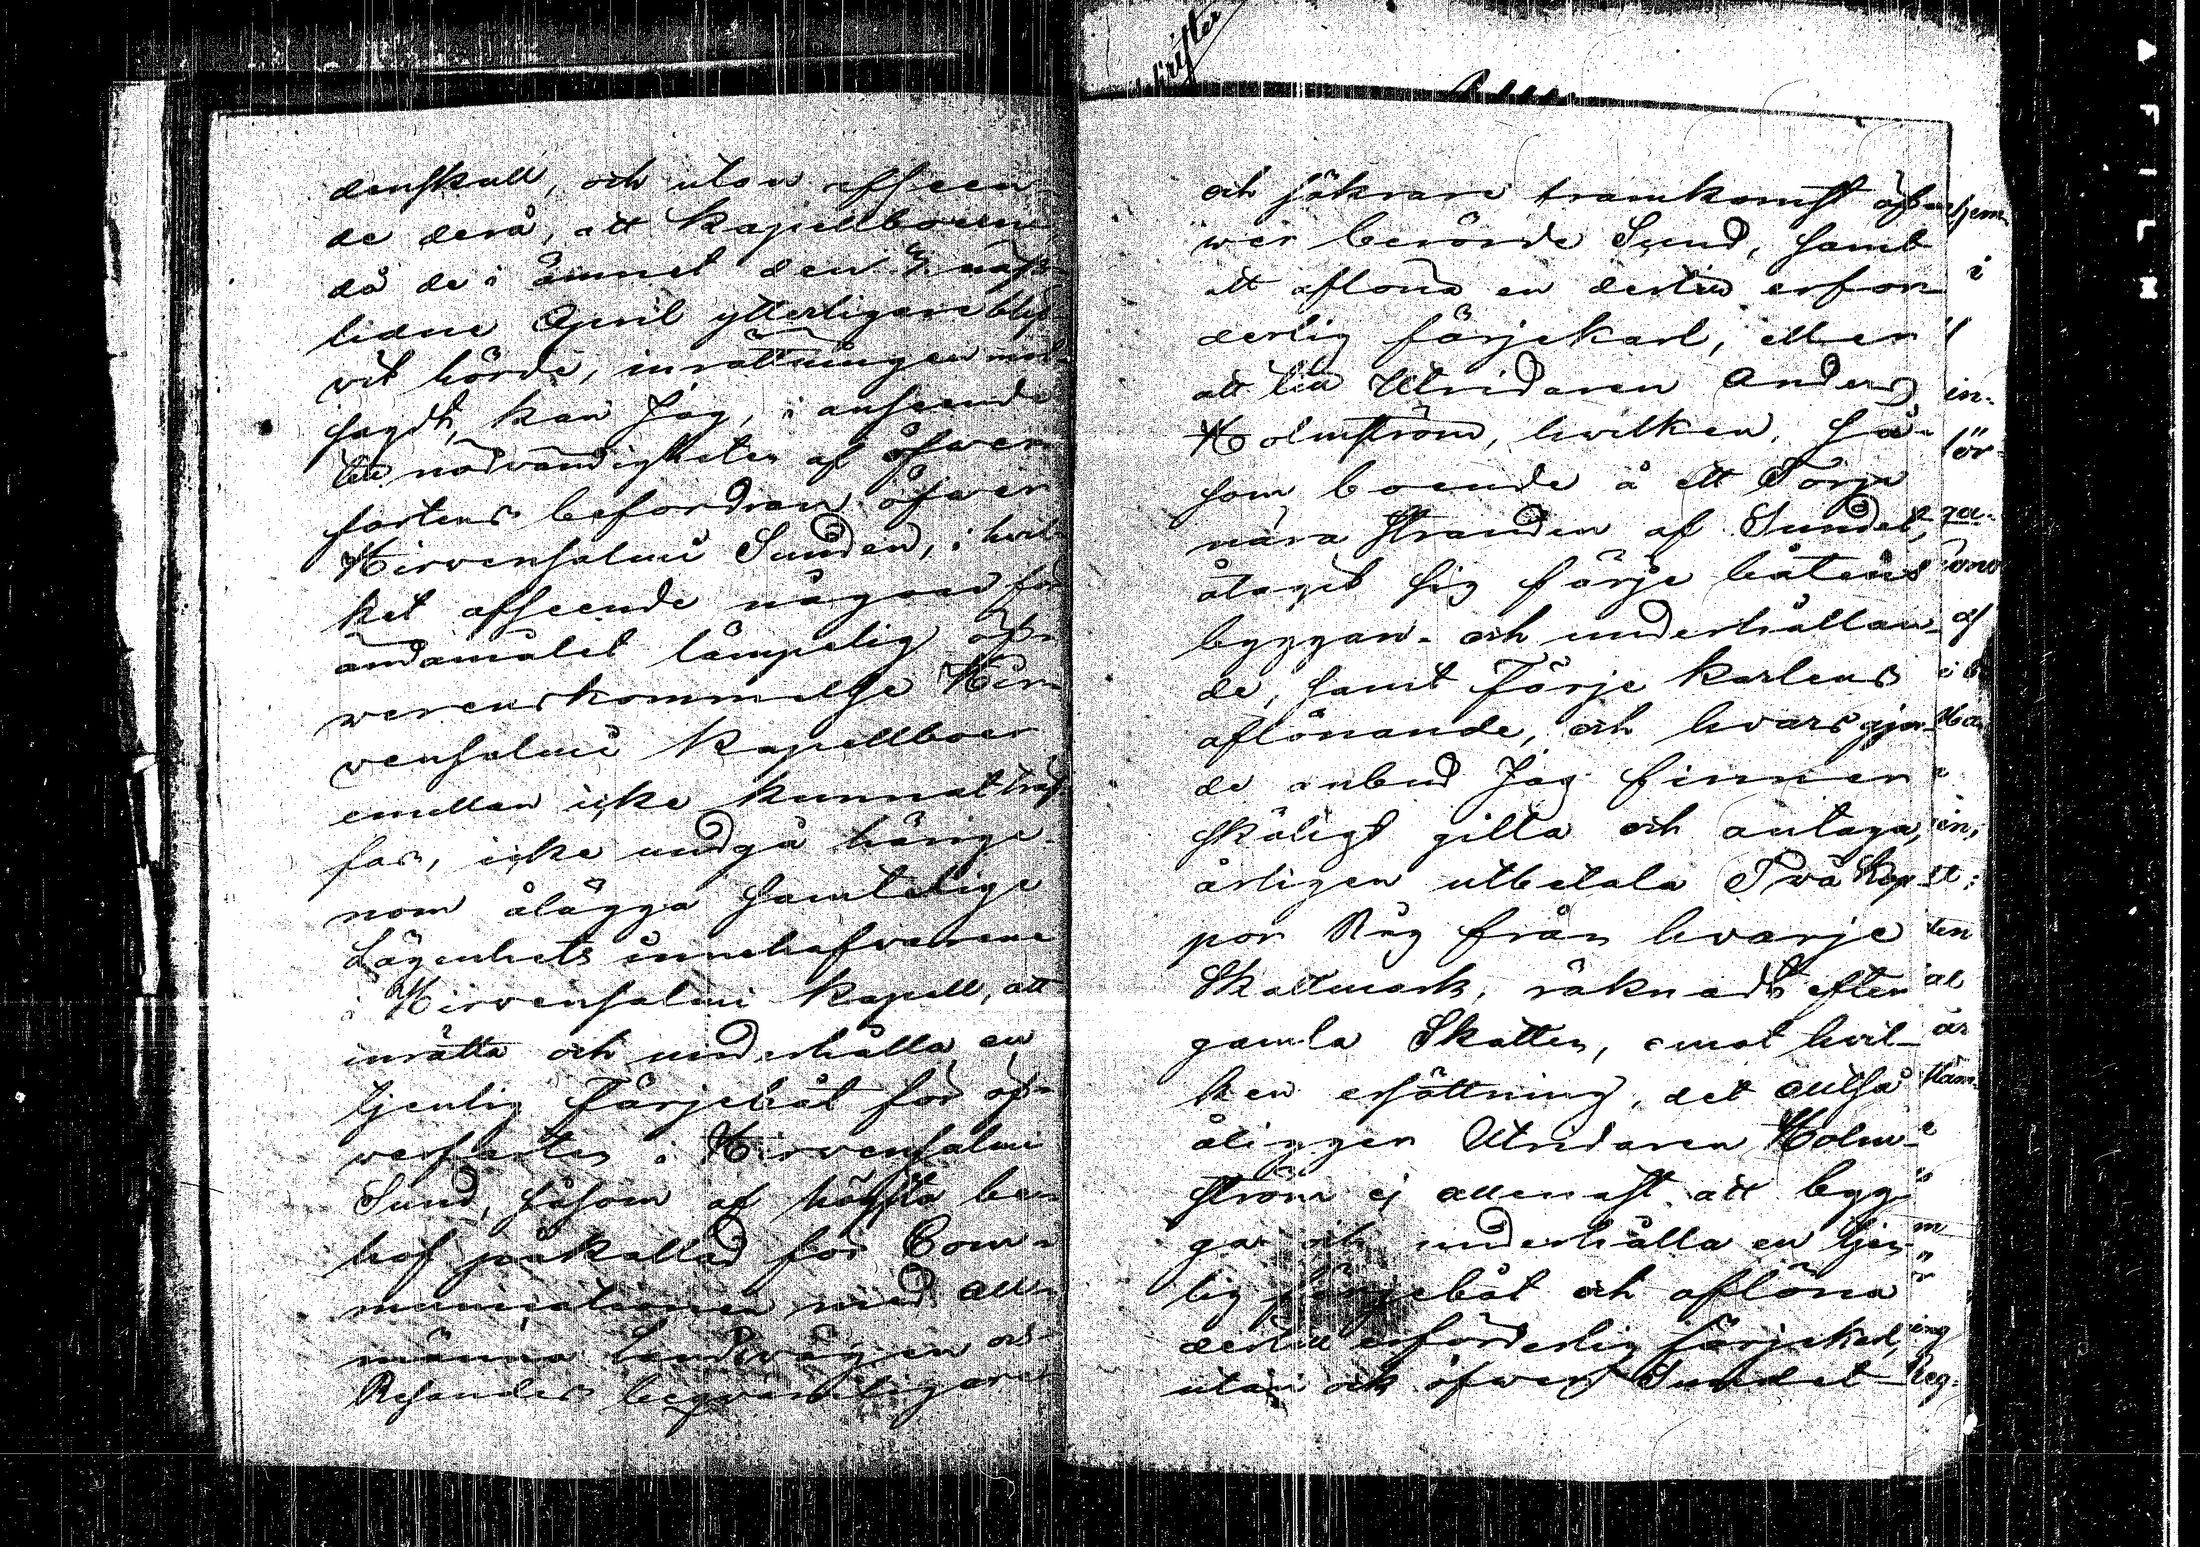 denskull, och utan afseen-
de derå, att kapellboerne
då de i ämnet den näst-
lidne April ytterligare blif-
vit hörde, inrättningen mot-
sagdt, kan Jag, i anseende
till nödvändigheten af öfver
fartens befordran öfwer
Hirvensalmi Sunden, i hvil-
ket afseende någon för
ändamålet lämpelig öf-
verenskommelse Hir-
vensalmi kapellboer
emellan icke kunnat träf-
fas, icke undgå härige-
nom ålägga samtelige
Lägenhets innehafvarene
i Hirvensalmi kapell, att
inrätta och underhålla en
tjenlig Färjebåt för öf-
verfarten i Hirvensalmi
Sund, såsom af högsta be-
hof påkallad för Com-
munication med all-
männa landsvägen och
Resandes beqvämligare
och säkrare framkomst öf-
wer berörde Sund, samt
att aflöna en dertill erfor-
derlig färjekarl, eller
att till Utridaren Anders
Holmström, hvilken, så-
som boende å ett Torp
nära stranden af Sundet,
åtagit sig färje båtens
byggan- och underhållan-
de, samt Färje karlens
aflönande, och hvars gjor-
de anbud Jag finner
skäligt gilla och antaga,
årligen utbetala Två Kap-
por Råg från hvarje
Skattmark, räknadt efter
gamla Skatten, emot hvil-
ken ersättning, det altså
åligger Utridaren Holm-
ström ej allenast att byg-
ga och underhålla en tjen-
lig färjebåt och aflöna
dertill erforderlig färjekarl,
utan och öfwer Sundet